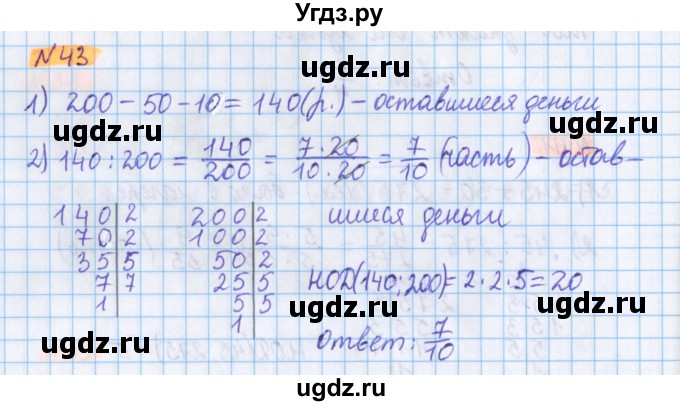 Угдз.ру
N 43
1) 200 - 50 - 10 = 140 (р.) - оставшиеся деньги
2) 140 : 200 = 140/200 = 7·20/10·20 = 7/10 (часть) - остав-
шиеся деньги
140|2 200|2
70|2 100|2
35|5 50|2
7|7 25|5
1| 5|5
1|
НОД(140; 200) = 2·2·5 = 20
Ответ: 7/10
ugdz.ru ugdz.ru ugdz.ru
ugdz.ru ugdz.ru ugdz.ru
ugdz.ru ugdz.ru ugdz.ru
ugdz.ru ugdz.ru ugdz.ru